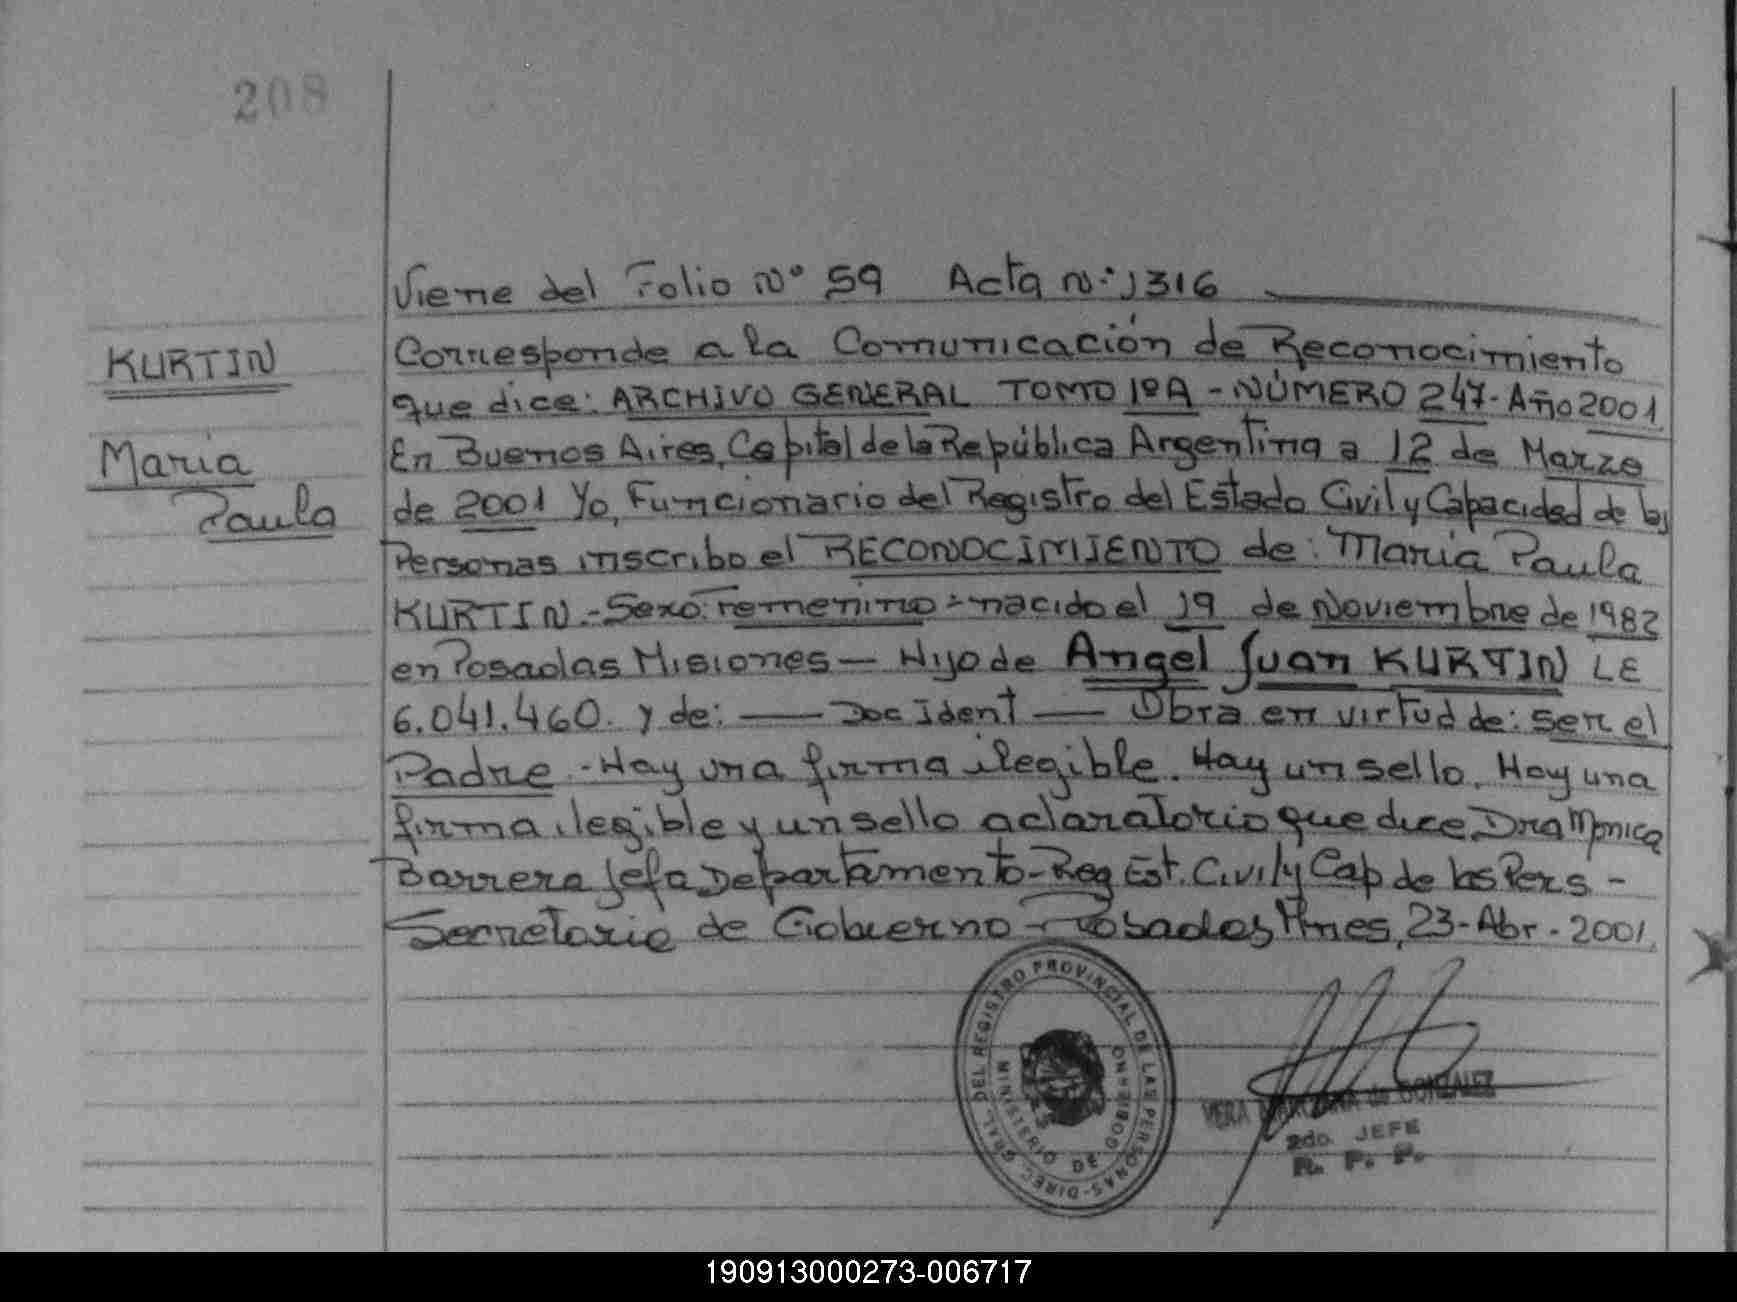 208
Viene del Folio Nº 59 Acta n: 1316
KURTIN
Maria
Paula
Corresponde a la Comunicación de Reconocimiento
que dice: ARCHIVO GENERAL TOMO 1º A - NÚMERO 247 - Año 2001,
En Buenos Aires, Capital de la República Argentina a 12 de Marzo
de 2001 Yo, Funcionario del Registro del Estado Civil y Capacidad de las
Personas inscribo el RECONOCIMIENTO de: Maria Paula
KURTIN.- Sexo: Femenino - nacido el 19 de Noviembre de 1982
en Posadas Misiones - Hijo de Angel Juan KURTIN LE
6.041.460. y de: — Doc Ident — Obra en virtud de: ser el
Padre - Hay una firma ilegible. Hay un sello. Hay una
firma ilegible y un sello aclaratorio que dice Dra Monica
Barrera Jefa Departamento - Reg Est. Civil y Cap de las Pers. -
Secretaria de Gobierno - Posadas Mnes, 23 - Abr - 2001.
DIREC. GRAL. DEL REGISTRO PROVINCIAL DE LAS PERSONAS -
MINISTERIO DE GOBIERNO
VERA de GONZALEZ
2do. JEFE
R. P. P.
190913000273-006717